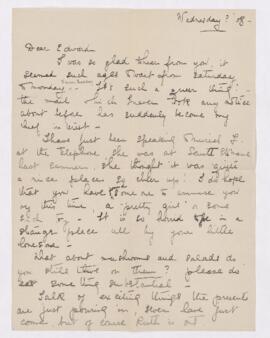 Wednesday? '08 -
Dear Edward
I was so glad to hear from you, it
seemed such ages to wait from Saturday
to Monday - It's such a queer thing:-
the mail which I never took any notice
about before has suddenly become my
chief interest -
I have just been speaking to Muriel L.
at the telephone, she was at South
last summer, she thought it was quite
a nice place, so cheer up! I do hope
that you have some one to amuse you
by this time, a "pretty girl" or some
such toy - It is so horrid to be in a
strange place all by your little
lonesome -
What about mushrooms and salads do
you still live on them? please do
eat something substantial -
Talk of exciting things the presents
are just pouring in, seven have just
come but of course Ruth is out